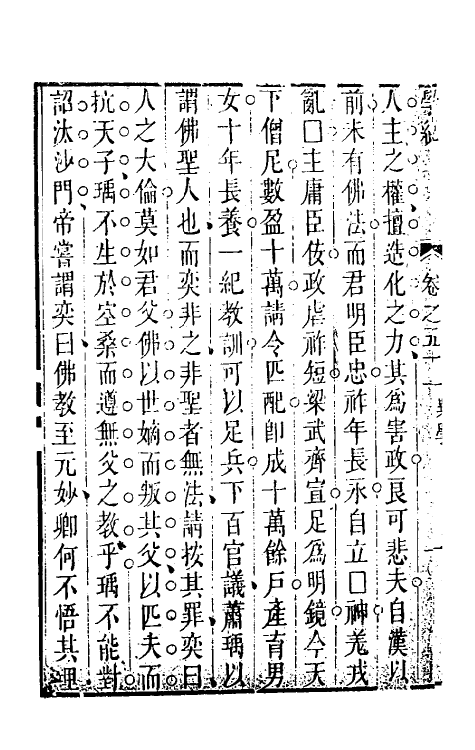 人主之權擅造化之力其爲害政良可悲夫自漢以
前未有佛法而君明臣忠祚年長永自立□神羌戎
亂□主庸臣佞政虐祚短梁武齊宣足爲明鏡今天
下僧尼數盈十萬請令匹配卽成十萬餘戶產育男
女十年長養一紀敎訓可以足兵下百官議蕭瑀以
謂佛聖人也而奕非之非聖者無法請按其罪奕曰
人之大倫莫如君父佛以世嫡而叛其父以匹夫而
抗天子瑀不生於空桑而遵無父之敎乎瑀不能對
詔汰沙門帝嘗謂奕曰佛敎至元妙卿何不悟其理
卷之五十一